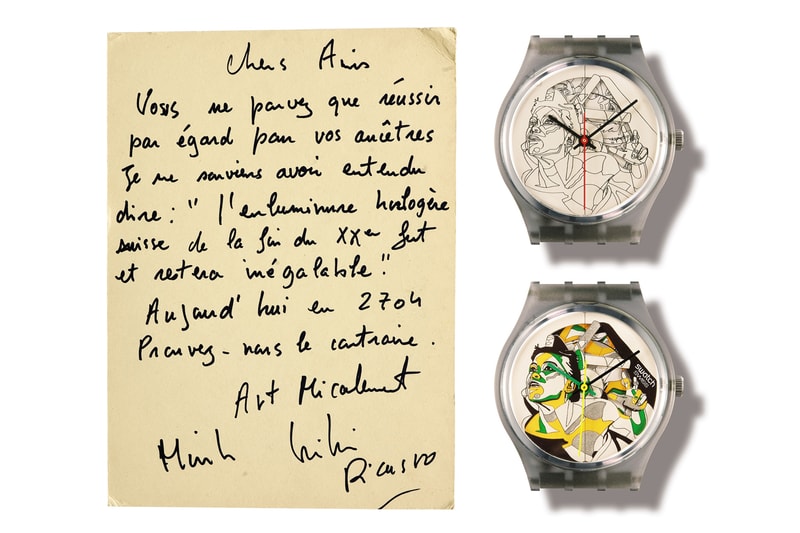 Chers Amis
Vous ne pouvez que réussir
par égard pour vos ancêtres
Je me souviens avoir entendu
dire : " l'enluminure horlogère
suisse de la fin du XXem fut
et restera inégalable "
Aujourd'hui en 2704
Prouvez-nous le contraire.
Art Micalement
Kiki
Picasso
swatch
SWISS